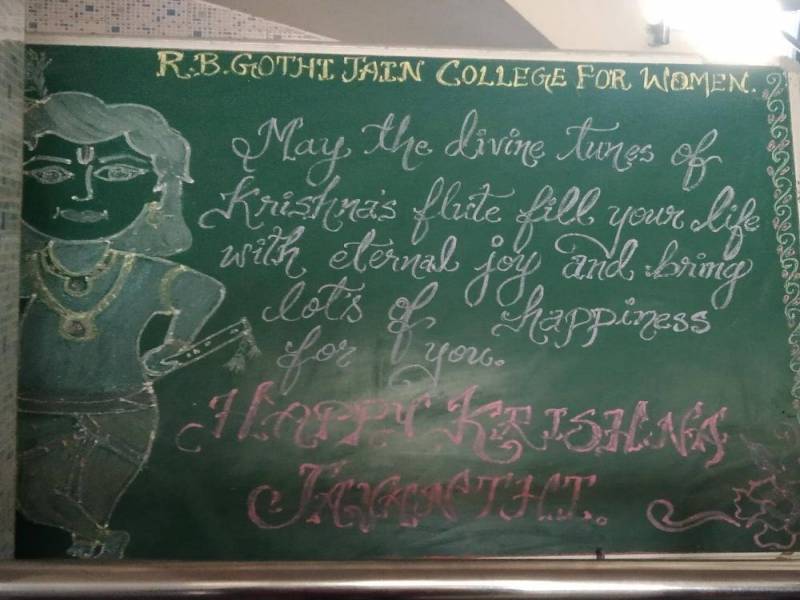 R.B.GOTHI JAIN COLLEGE FOR WOMEN.
May the divine tunes of
Krishna's flute fill your life
with eternal joy and bring
lot's of happiness
for you.
HAPPY KRISHNA
JAYANTHI.